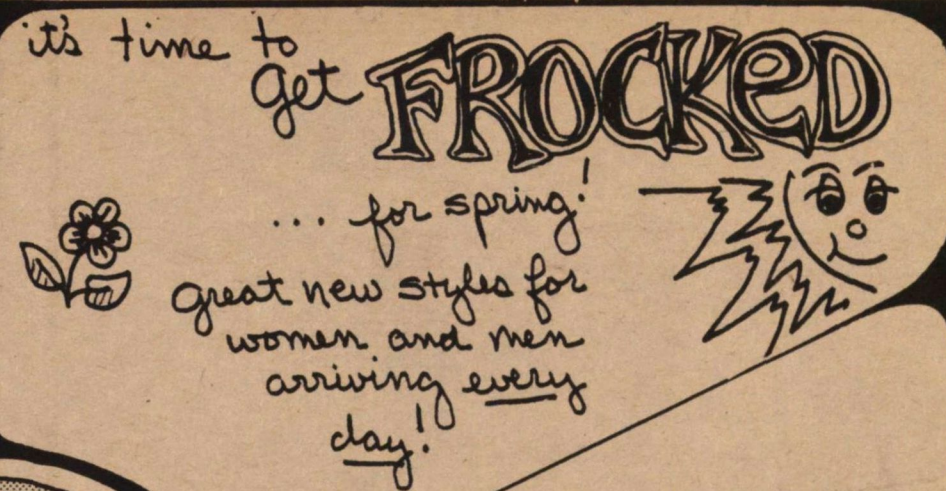 it's time to
get FROCKED
... for spring!
great new styles for
women and men
arriving every
day!